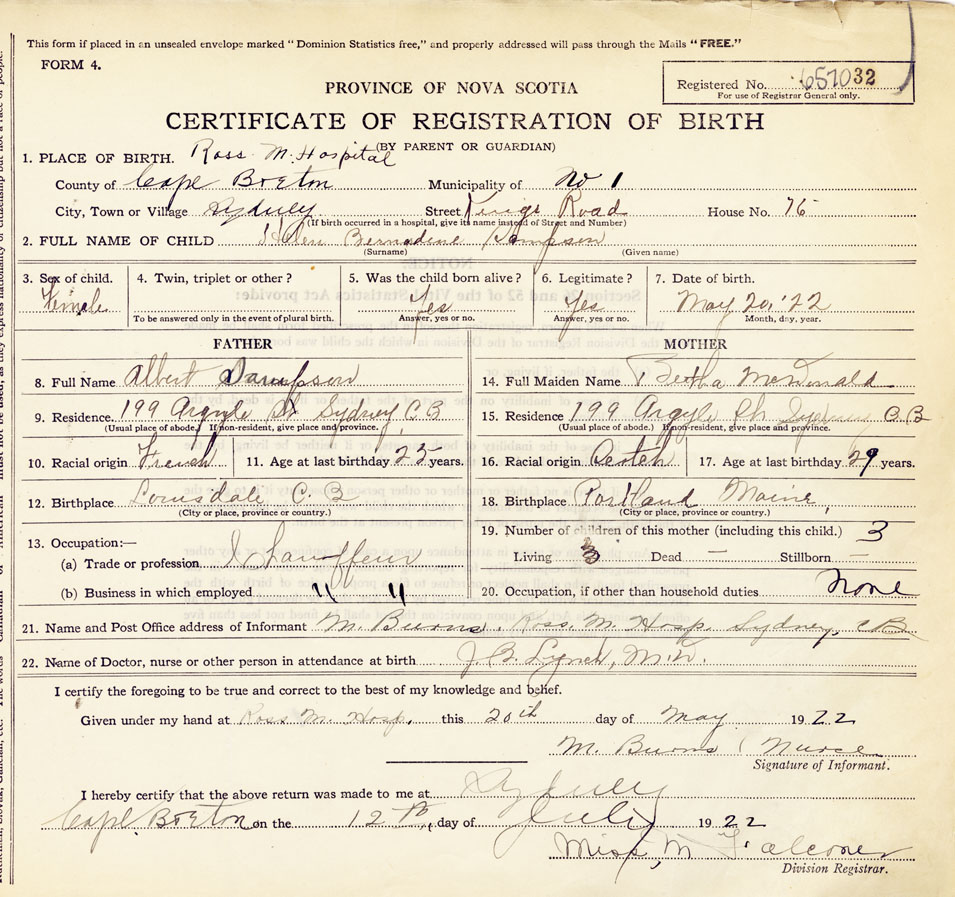 This form if placed in an unsealed envelope marked "Dominion Statistics free," and properly addressed will pass through the Mails "FREE."
FORM 4.
Registered No. 657032
For use of Registrar General only.
PROVINCE OF NOVA SCOTIA
CERTIFICATE OF REGISTRATION OF BIRTH
(BY PARENT OR GUARDIAN)
1. PLACE OF BIRTH. Ross M. Hospital
County of Cape Breton Municipality of No 1
City, Town or Village Sydney Street Kings Road House No. 76
(If birth occurred in a hospital, give its name instead of Street and Number)
2. FULL NAME OF CHILD Helen Bernadine Sampson
(Surname) (Given name)
3. Sex of child. 4. Twin, triplet or other? 5. Was the child born alive? 6. Legitimate? 7. Date of birth.
Female Yes Yes May 20, '22
To be answered only in the event of plural birth. Answer, yes or no. Answer, yes or no. Month, day, year.
FATHER MOTHER
8. Full Name Albert Sampson 14. Full Maiden Name Bertha McDonald
9. Residence 199 Argyle St Sydney, C.B 15. Residence 199 Argyle St. Sydney C.B
(Usual place of abode.) If non-resident, give place and province. (Usual place of abode.) If non-resident, give place and province.
10. Racial origin French 11. Age at last birthday 25 years. 16. Racial origin Scotch 17. Age at last birthday 29 years.
12. Birthplace Louisdale C. B 18. Birthplace Portland Maine,
(City or place, province or country.) (City or place, province or country.)
13. Occupation:— 19. Number of children of this mother (including this child.) 3
(a) Trade or profession Chauffeur Living 3 Dead — Stillborn —
(b) Business in which employed " " 20. Occupation, if other than household duties None
21. Name and Post Office address of Informant M. Burns, Ross. M. Hosp. Sydney, CB
22. Name of Doctor, nurse or other person in attendance at birth J. B. Lynch, M.D.
I certify the foregoing to be true and correct to the best of my knowledge and belief.
Given under my hand at Ross M. Hosp. this 20th day of May 1922
M. Burns (Nurse
Signature of Informant.
I hereby certify that the above return was made to me at Sydney
Cape Breton on the 12th, day of July 1922
Miss, M Falconer
Division Registrar.